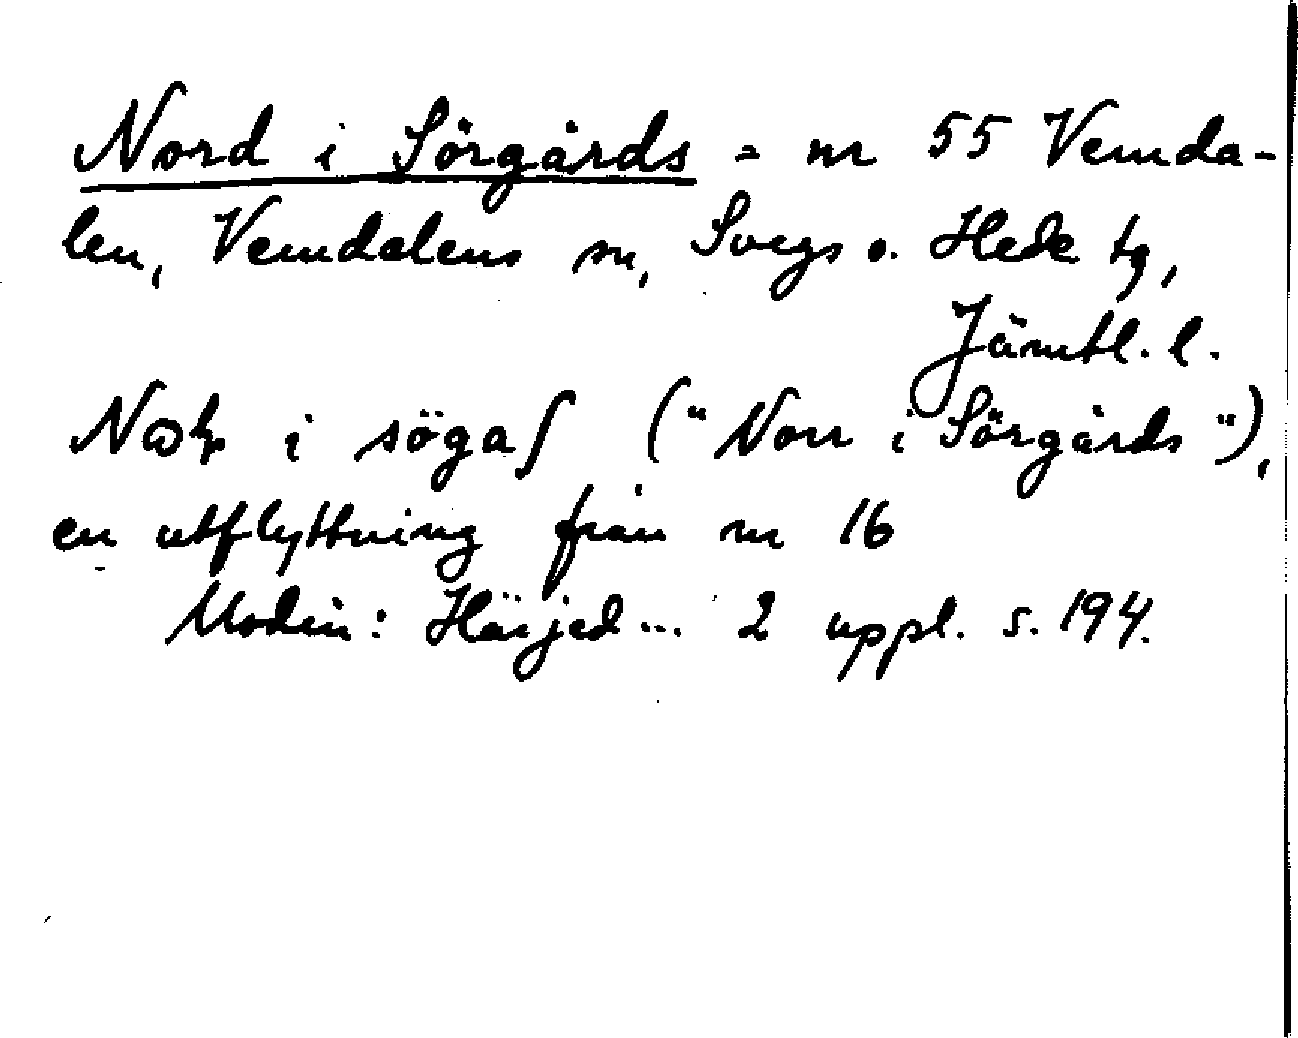 Nord i Sörgårds = nr 55 Vemda-
len, Vemdalens sn, Svegs o. Hede tg,
Jämtl. l.
i sögaʃ ("Norr i Sörgårds"),
en utflyttning från nr 16
Modin: Härjed... 2 uppl. s. 194.